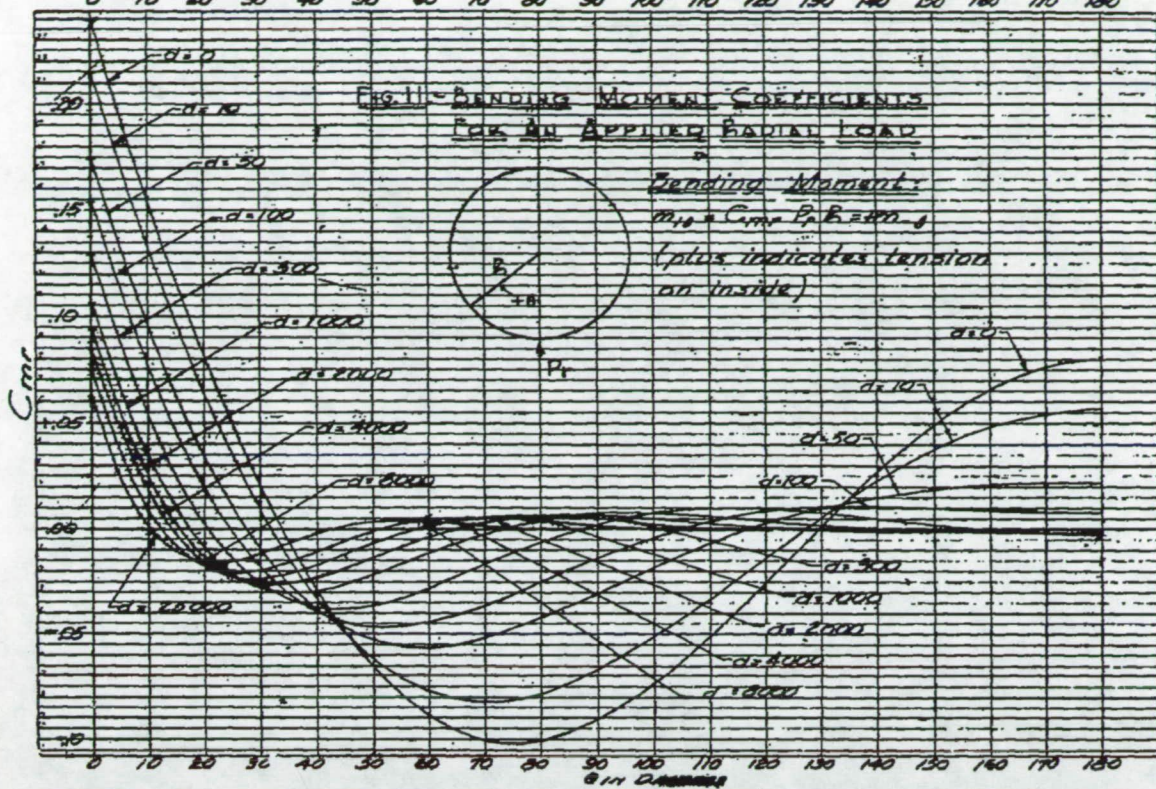 0 10 20 30 40 50 60 70 80 90 100 110 120 130 140 150 160 170 180
FIG. 11 - BENDING MOMENT COEFFICIENTS
FOR AN APPLIED RADIAL LOAD
Bending Moment:
(plus indicates tension
on inside)
R
+θ
Pr
Cmr
.20
.15
.10
+.05
.00
-.05
-.10
d=0
d=10
d=50
d=100
d=300
d=1000
d=2000
d=4000
d=8000
d=20000
d=0
d=10
d=50
d=100
d=300
d=1000
d=2000
d=4000
d=8000
0 10 20 30 40 50 60 70 80 90 100 110 120 130 140 150 160 170 180
θ IN